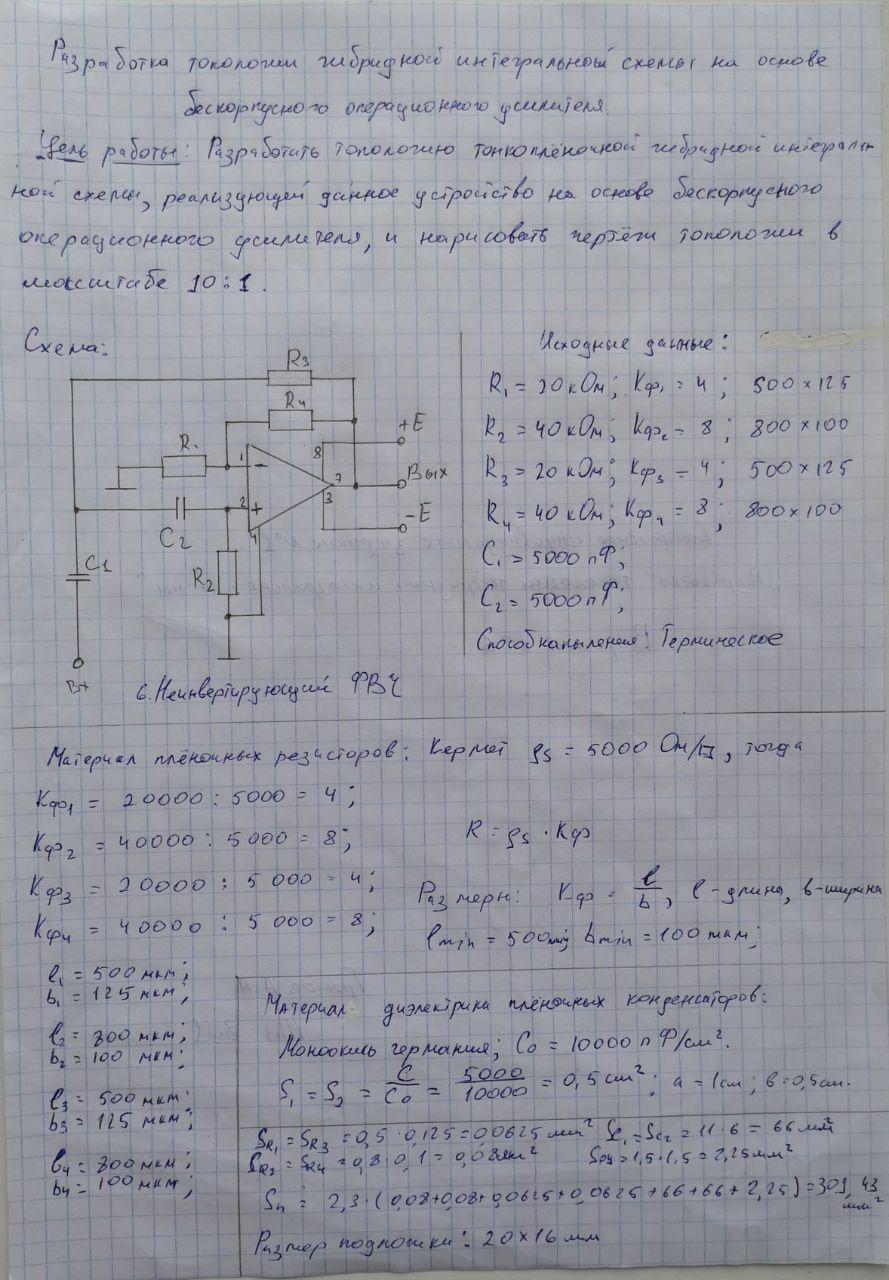 Разработка топологии гибридной интегральной схемы на основе
бескорпусного операционного усилителя.
Цель работы: Разработать топологию тонкоплёночной гибридной интеграль-
ной схемы, реализующей данное устройство на основе бескорпусного
операционного усилителя, и нарисовать чертёж топологии в
масштабе 10:1.
Схема:
R3
R4
R1
1
8
7
2
3
4
+E
Вых
-E
C2
C1
R2
Вх
6. Неинвертирующий ФВЧ
Исходные данные:
R1 = 20 кОм; Kф1 = 4; 500×125
R2 = 40 кОм; Kф2 = 8; 800×100
R3 = 20 кОм; Kф3 = 4; 500×125
R4 = 40 кОм; Kф4 = 8; 800×100
C1 = 5000 пФ;
C2 = 5000 пФ;
Способ напыления: Термическое
Материал плёночных резисторов: Кермет ρs = 5000 Ом/□, тогда
Kф1 = 20000 : 5000 = 4;
Kф2 = 40000 : 5000 = 8;
Kф3 = 20000 : 5000 = 4;
Kф4 = 40000 : 5000 = 8;
R = ρs · Kф
Размеры: Kф = l/b, l - длина, b - ширина
lmin = 500 мкм; bmin = 100 мкм;
l1 = 500 мкм;
b1 = 125 мкм;
l2 = 800 мкм;
b2 = 100 мкм;
l3 = 500 мкм;
b3 = 125 мкм;
l4 = 800 мкм;
b4 = 100 мкм;
Материал диэлектрика плёночных конденсаторов:
Моноокись германия; C0 = 10000 пФ/см².
S1 = S2 = C/C0 = 5000/10000 = 0,5 см²; a = 1 см; b = 0,5 см.
SR1 = SR3 = 0,5 · 0,125 = 0,0625 мм² Sc1 = Sc2 = 11 · 6 = 66 мм²
SR2 = SR4 = 0,8 · 0,1 = 0,08 мм² SОУ = 1,5 · 1,5 = 2,25 мм²
Sп = 2,3 · (0,08+0,08+0,0625+0,0625+66+66+2,25) = 309,43 мм²
Размер подложки: 20×16 мм